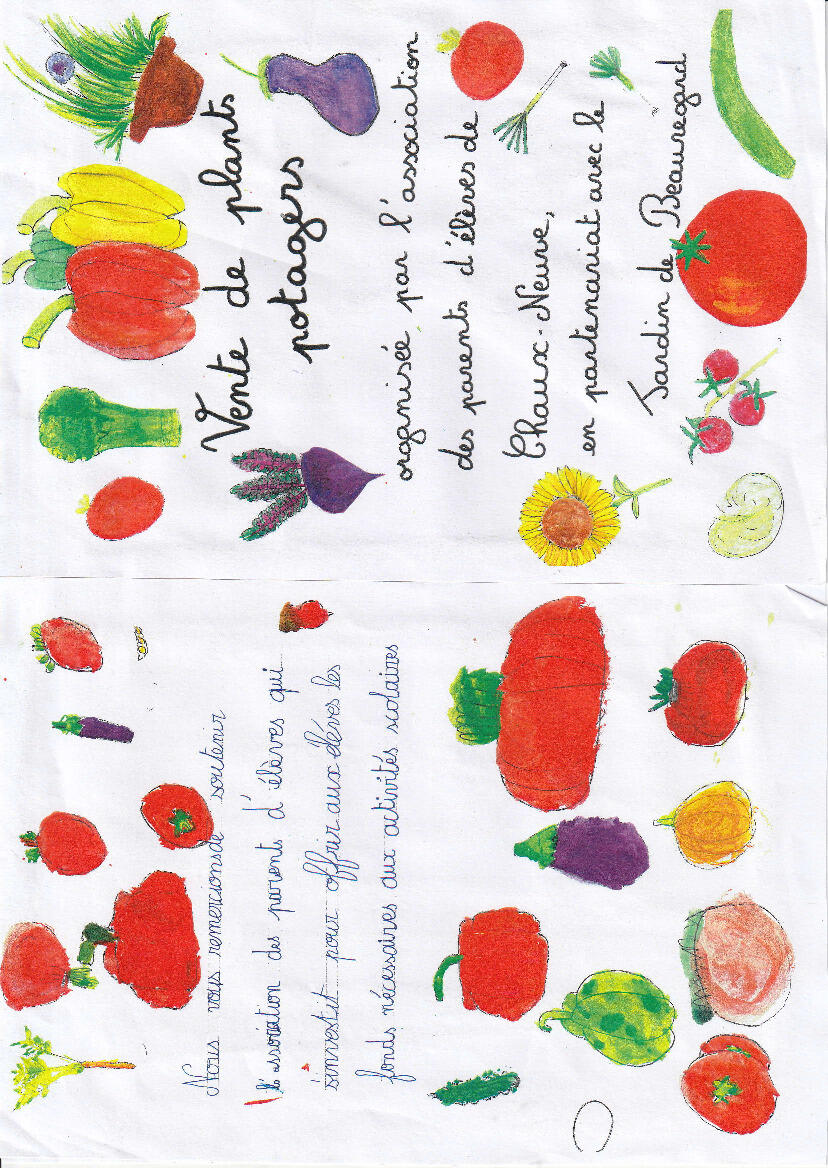 Vente de plants
potagers
organisée par l'association
des parents d'élèves de
Chaux-Neuve,
en partenariat avec le
Jardin de Beauregard
Nous vous remercions de soutenir
l'association des parents d'élèves qui
s'investit pour offrir aux élèves les
fonds nécessaires aux activités scolaires